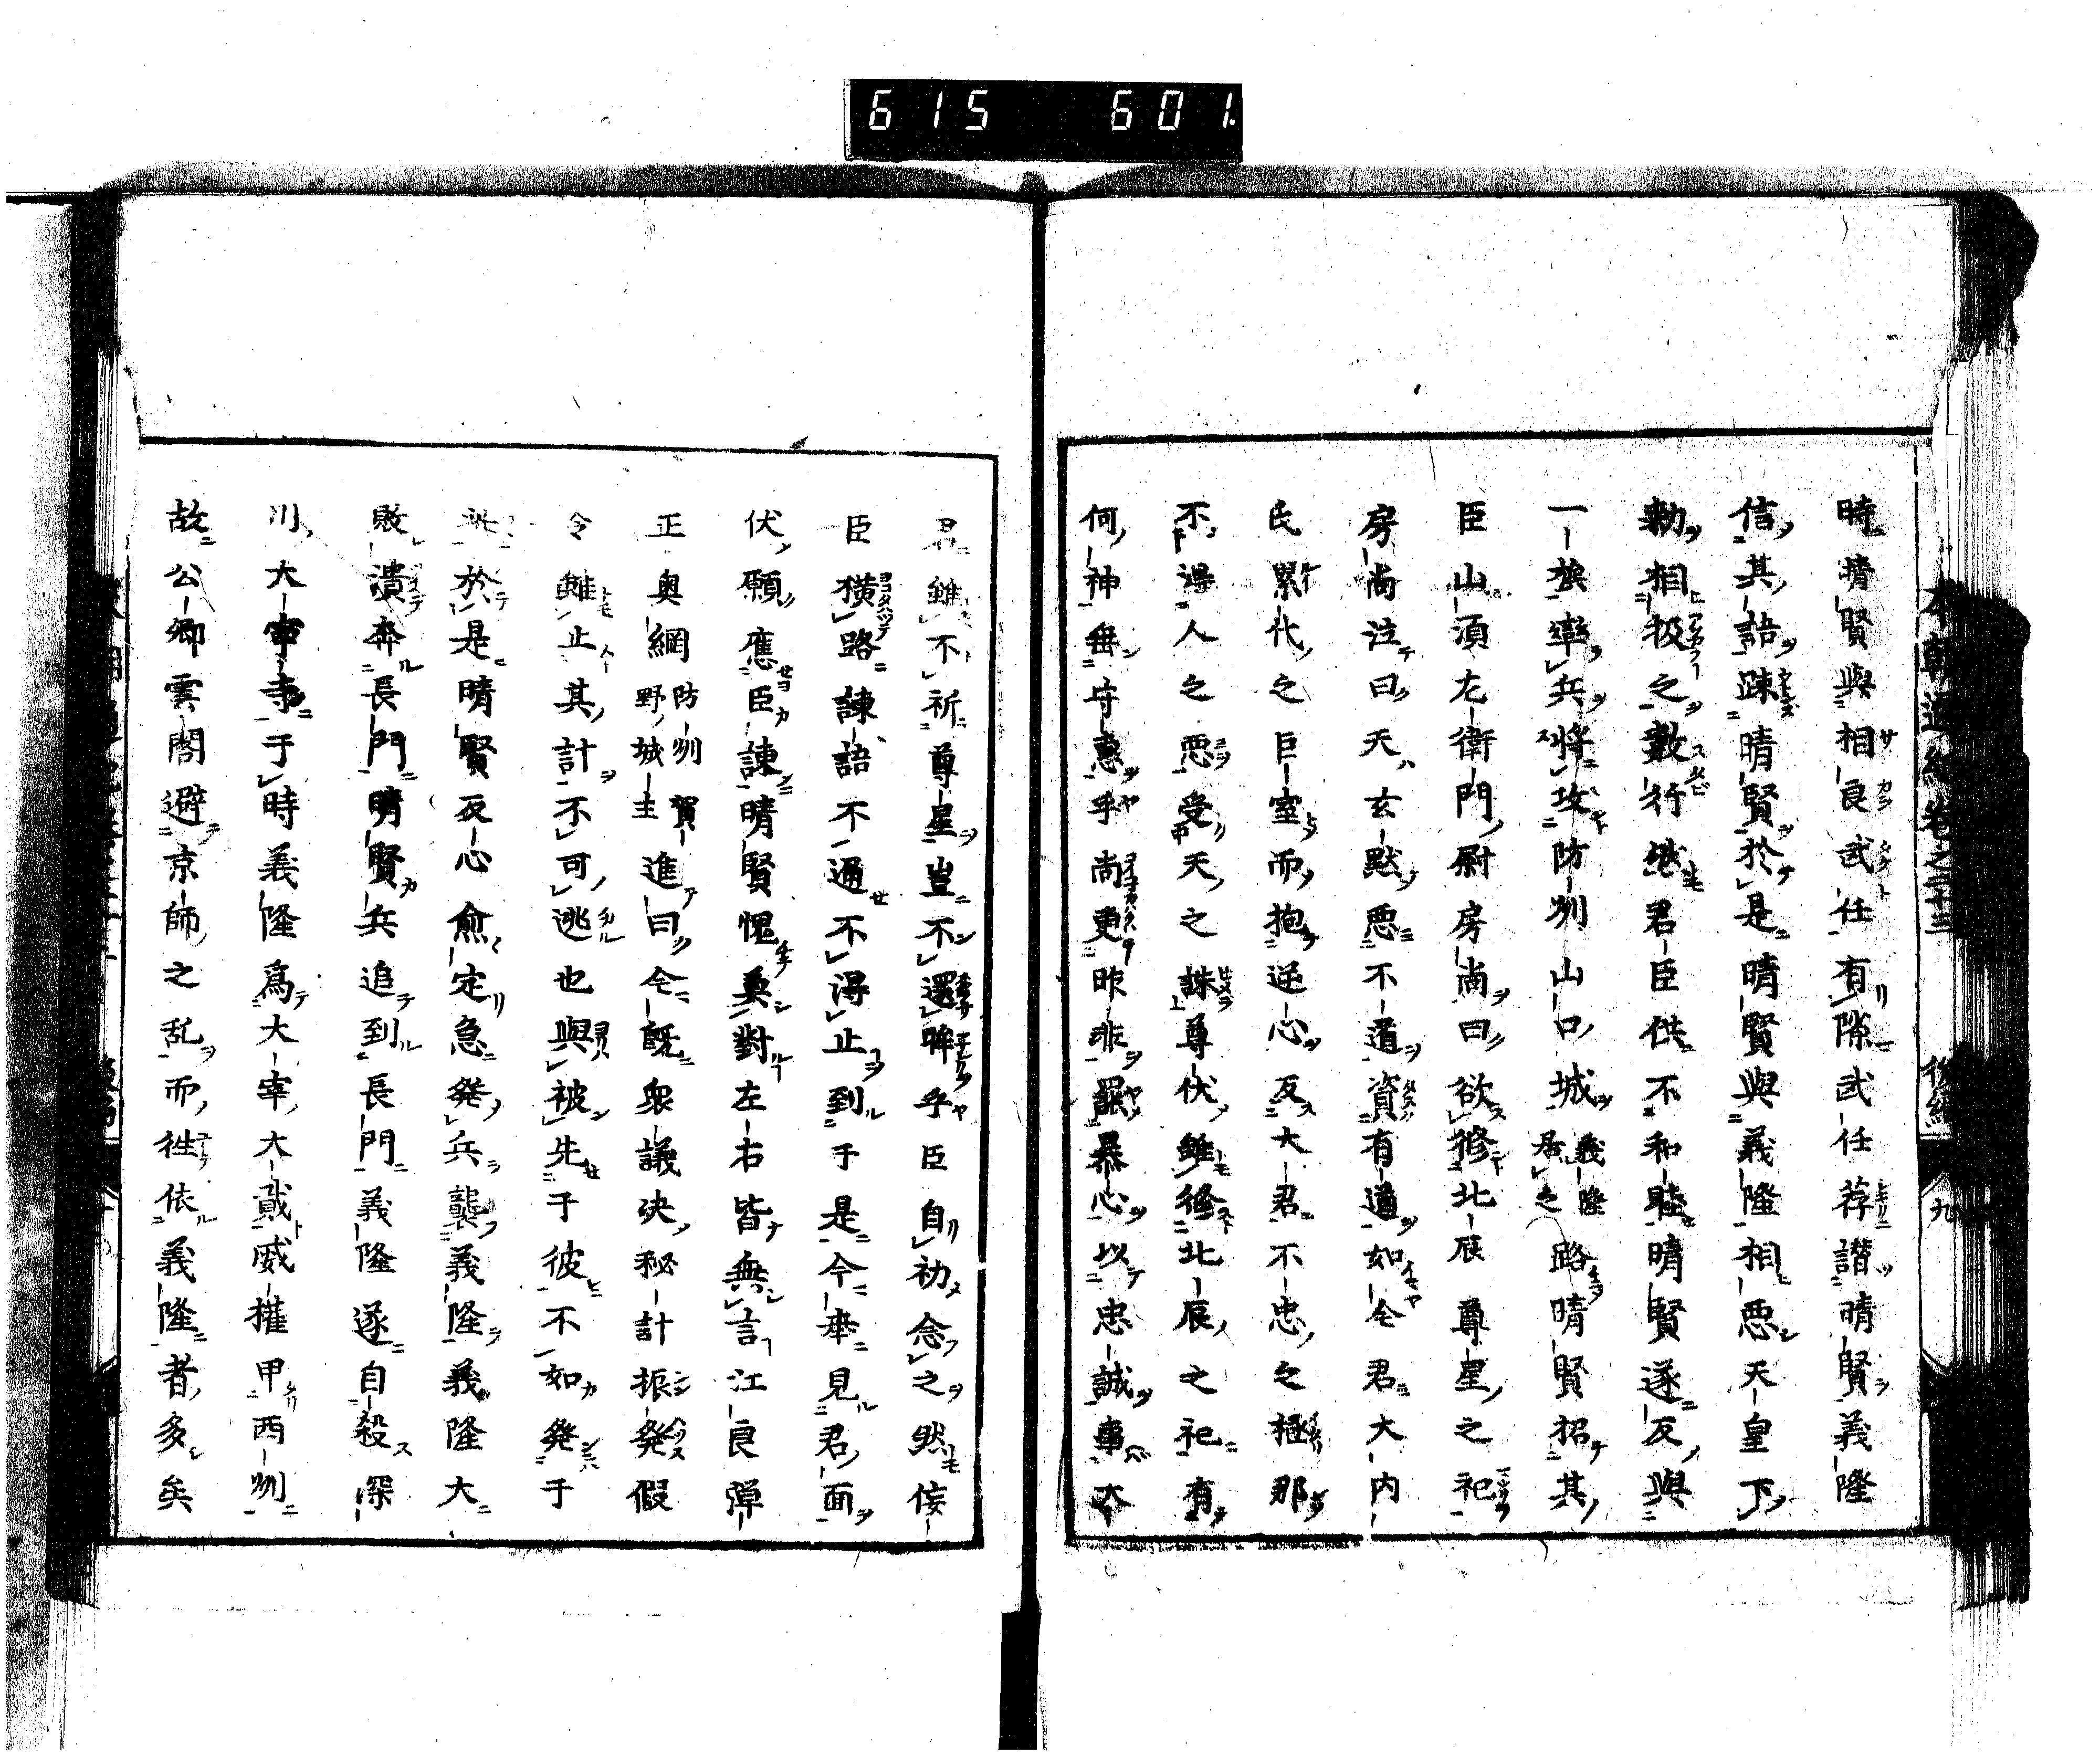 615 601
時晴賢與相良武任有隙武任荐譖晴賢義隆
信其語疎晴賢於是晴賢與義隆相惡天皇下
勅相扱之數行然君臣供不和睦晴賢遂反與
一族率兵將攻防州山口城義隆居之路晴賢招其
臣山須左衛門尉房尚曰欲修北辰尊星之祀
房尚泣曰天玄默惡不道資有道如今君大内
氏累代之巨室而抱逆心反大君不忠之極那
不得人之惡受天之誅尊伏雖修北辰之祀有
何神無守惠乎尚更昨非飜暴心以忠誠事大
君雖不祈尊星豈不還眸乎臣自初念之然侫
臣横路諌語不通不得止到于是今奉見君面
伏願應臣諌晴賢愧奥對左右皆無言江良彈
正奥綱防州賀野城主進曰今既衆議决秘計振発假
令雖止其計不可逃也與被先于彼不如発于
此於是晴賢反心愈定急発兵襲義隆義隆大
敗潰奔長門晴賢兵追到長門義隆遂自殺深
川大寧寺于時義隆爲大宰大貳威權甲西州
故公卿雲閣避京師之乱而往依義隆者多矣
本朝通紀卷之二十三 後編 九